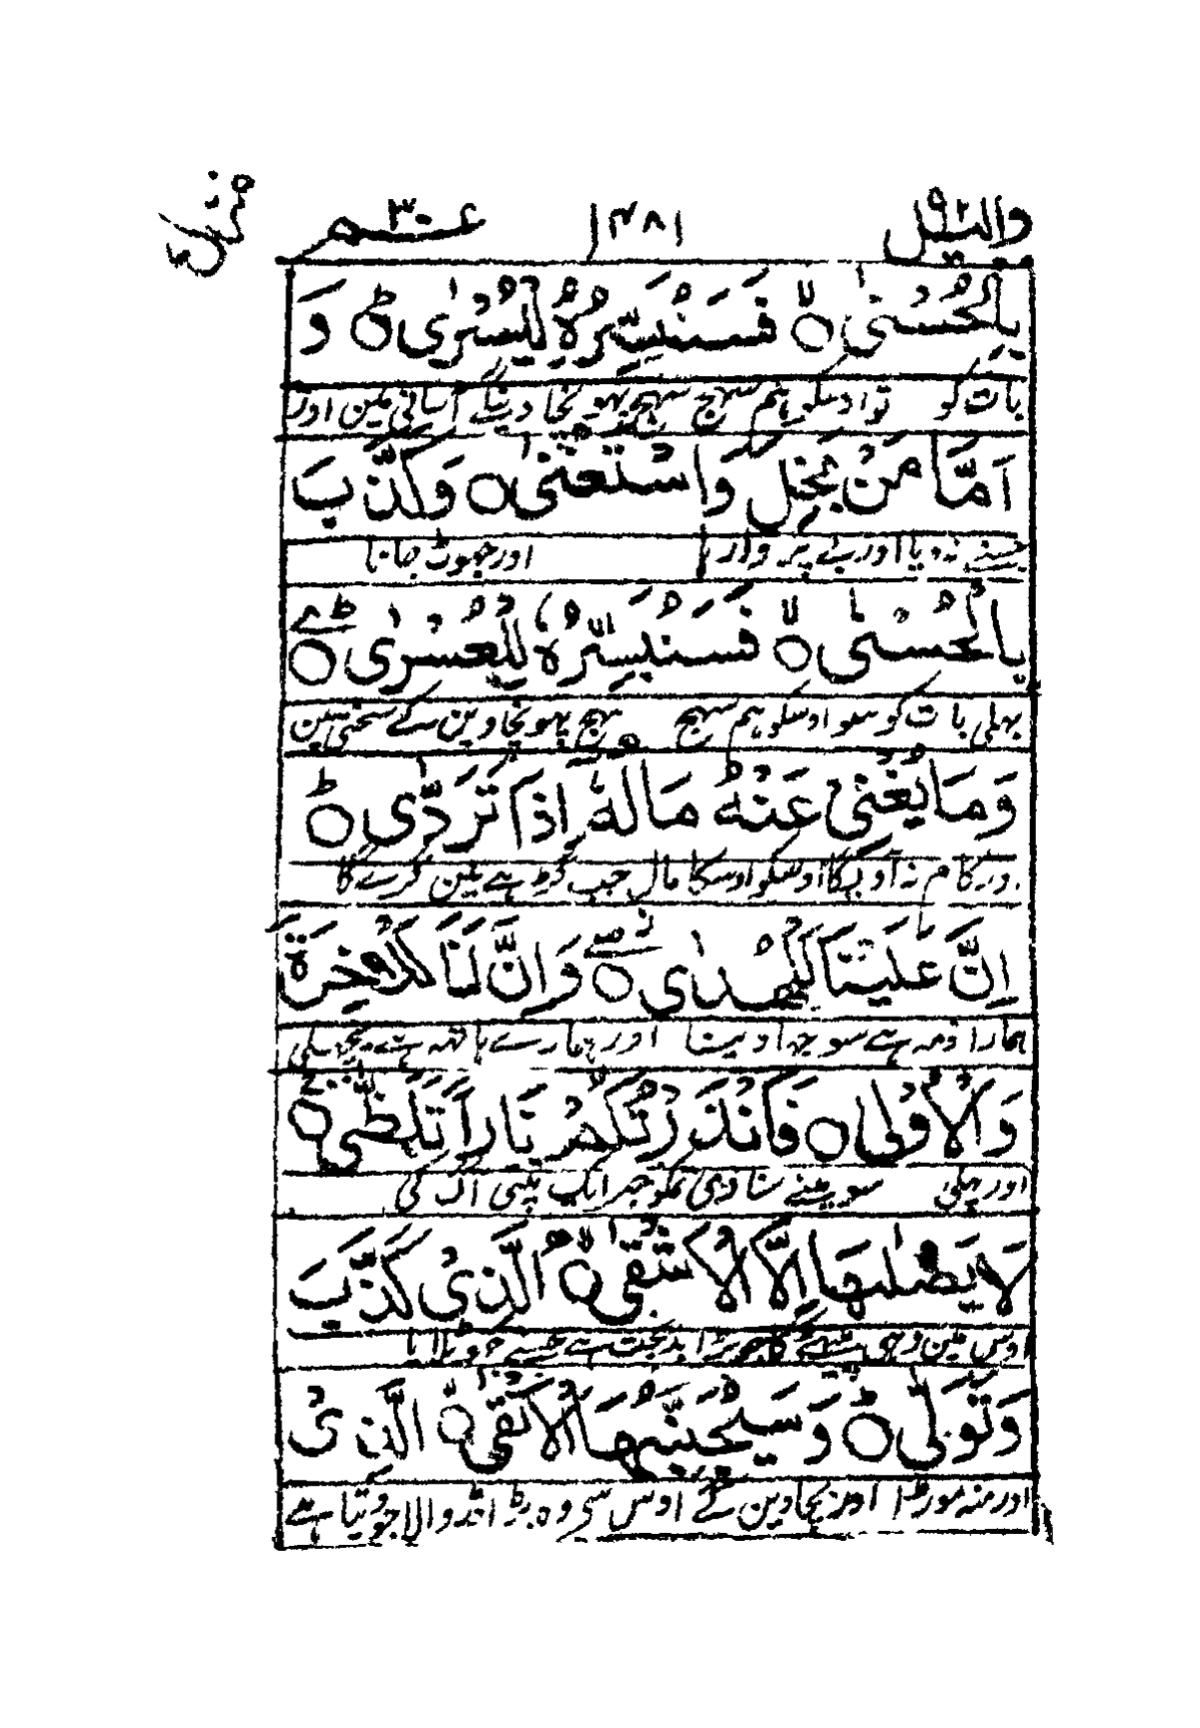 والیل ٩٢
١٤٨١
عم ٣٠
منزل
بِالْحُسْنٰى ۙ فَسَنُيَسِّرُهٗ لِلْيُسْرٰى ؕ وَ
بات کو تو اوسکو ہم سہج سہج پہونچا دینگے آسانی مین اور
اَمَّا مَنْۢ بَخِلَ وَاسْتَغْنٰى ۙ وَكَذَّبَ
جسنے نہ دیا اور بے پروا رہا اور جھوٹ جانا
بِالْحُسْنٰى ۙ فَسَنُيَسِّرُهٗ لِلْعُسْرٰى ؕ
بہلی بات کو سو اوسکو ہم سہج سہج پہونچاوین گے سختی مین
وَمَا يُغْنِىْ عَنْهُ مَالُهٗۤ اِذَا تَرَدّٰى ؕ
اور کام نہ آویگا اوسکو اوسکا مال جب گڑھے مین گرے گا
اِنَّ عَلَيْنَا لَلْهُدٰى ۖ وَاِنَّ لَنَا لَلْاٰخِرَةَ
ہمارا ذمہ ہے سوجھا دینا اور ہمارے ہاتھ ہے پچھلی
وَالْاُوْلٰى ۞ فَاَنْذَرْتُكُمْ نَارًا تَلَظّٰى ۚ
اور پہلی سو مینے سنا دی تمکو خبر ایک تپتی آگ کی
لَا يَصْلٰىهَاۤ اِلَّا الْاَشْقَى ۙ الَّذِىْ كَذَّبَ
اوس مین وہی بڑا بدبخت ہے جسنے جھوٹلایا
وَتَوَلّٰى ؕ وَسَيُجَنَّبُهَا الْاَتْقَى ۙ الَّذِىْ
اور منہ موڑا اور بچادین گے اوس سے وہ بڑا ڈر والا جو دیتا ہے